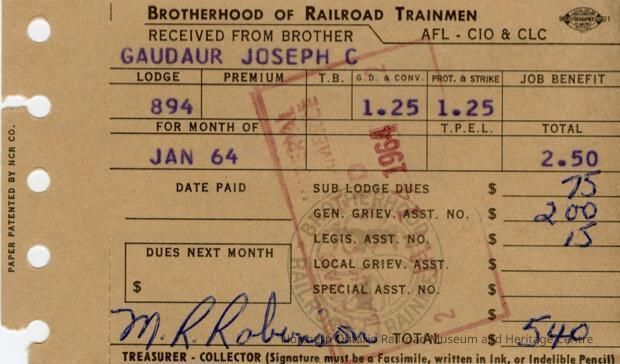 BROTHERHOOD OF RAILROAD TRAINMEN
RECEIVED FROM BROTHER AFL - CIO & CLC
GAUDAUR JOSEPH C
LODGE PREMIUM T.B. G.D. & CONV. PROT. & STRIKE JOB BENEFIT
894 1.25 1.25
FOR MONTH OF T.P.E.L. TOTAL
JAN 64 2.50
DATE PAID SUB LODGE DUES $ 75
GEN. GRIEV. ASST. NO. $ 200
LEGIS. ASST. NO. $ 15
DUES NEXT MONTH LOCAL GRIEV. ASST. $
$ SPECIAL ASST. NO. $
$
M. R. Robinson TOTAL $ 540
TREASURER - COLLECTOR (Signature must be a Facsimile, written in Ink, or Indelible Pencil)
PAPER PATENTED BY NCR CO.
1964
BROTHERHOOD OF RAILROAD TRAINMEN
Northern Ontario Railroad Museum and Heritage Centre